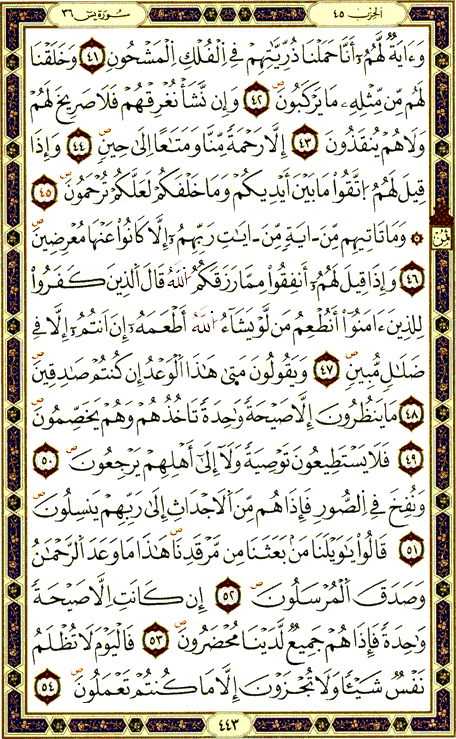 سُورَةُ يسٓ ٣٦
الحزب ٤٥
وَءَايَةٌ لَّهُمُۥٓ أَنَّا حَمَلْنَا ذُرِّيَّٰتِهِمْ فِى اِلْفُلْكِ اِلْمَشْحُونِ ٤١ وَخَلَقْنَا
لَهُم مِّن مِّثْلِهِۦ مَا يَرْكَبُونَ ٤٢ وَإِن نَّشَأْ نُغْرِقْهُمْ فَلَا صَرِيخَ لَهُمْ
وَلَا هُمْ يُنقَذُونَ ٤٣ إِلَّا رَحْمَةً مِّنَّا وَمَتَٰعًا اِلَىٰ حِينٍ ٤٤ وَإِذَا
قِيلَ لَهُمُ اُتَّقُواْ مَا بَيْنَ أَيْدِيكُمْ وَمَا خَلْفَكُمْ لَعَلَّكُمْ تُرْحَمُونَ ٤٥
وَمَا تَاتِيهِم مِّنَ اٰيَةٍ مِّنَ اٰيَٰتِ رَبِّهِمُۥٓ إِلَّا كَانُواْ عَنْهَا مُعْرِضِينَ
ثمن
٤٦ وَإِذَا قِيلَ لَهُمُۥٓ أَنفِقُواْ مِمَّا رَزَقَكُمُ اُللَّهُ قَالَ اَلذِينَ كَفَرُواْ
لِلذِينَ ءَامَنُوٓاْ أَنُطْعِمُ مَن لَّوْ يَشَآءُ اُللَّهُ أَطْعَمَهُۥٓ إِنَ اَنتُمُۥٓ إِلَّا فِى
ضَلَٰلٍ مُّبِينٍ ٤٧ وَيَقُولُونَ مَتَىٰ هَٰذَا اَلْوَعْدُ إِن كُنتُمْ صَٰدِقِينَ
٤٨ مَا يَنظُرُونَ إِلَّا صَيْحَةً وَٰحِدَةً تَاخُذُهُمْ وَهُمْ يَخَصِّمُونَ
٤٩ فَلَا يَسْتَطِيعُونَ تَوْصِيَةً وَلَآ إِلَىٰٓ أَهْلِهِمْ يَرْجِعُونَ ٥٠
وَنُفِخَ فِى اِلصُّورِ فَإِذَا هُم مِّنَ اَلَاجْدَاثِ إِلَىٰ رَبِّهِمْ يَنسِلُونَ
٥١ قَالُواْ يَٰوَيْلَنَا مَنۢ بَعَثَنَا مِن مَّرْقَدِنَا هَٰذَا مَا وَعَدَ اَلرَّحْمَٰنُ
وَصَدَقَ اَلْمُرْسَلُونَ ٥٢ إِن كَانَتِ اِلَّا صَيْحَةً
وَٰحِدَةً فَإِذَا هُمْ جَمِيعٌ لَّدَيْنَا مُحْضَرُونَ ٥٣ فَالْيَوْمَ لَا تُظْلَمُ
نَفْسٌ شَيْـًٔا وَلَا تُجْزَوْنَ إِلَّا مَا كُنتُمْ تَعْمَلُونَ ٥٤
٤٤٣